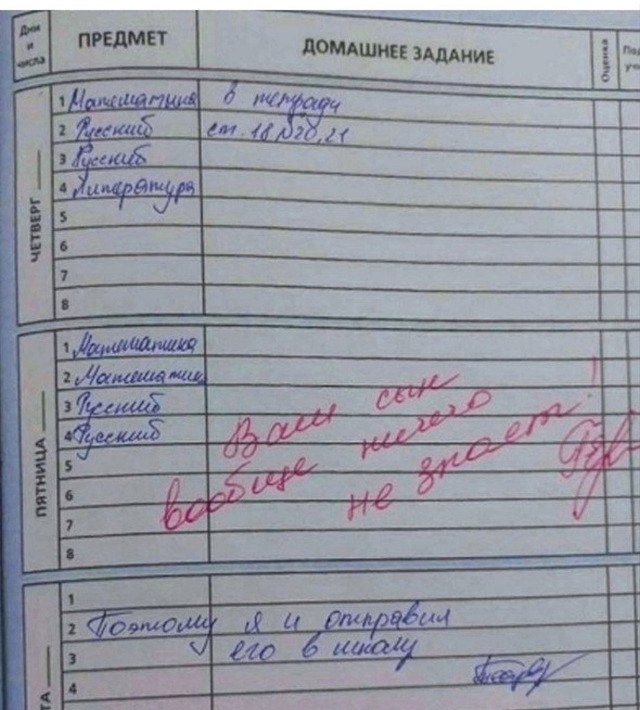 Дни и числа ПРЕДМЕТ ДОМАШНЕЕ ЗАДАНИЕ Оценка
ЧЕТВЕРГ
1 Математика в тетради
2 Русский ст. 18 №20, 21
3 Русский
4 Литература
5
6
7
8
ПЯТНИЦА
1 Математика
2 Математика
3 Русский
4 Русский
5
6
7
8
Ваш сын
вообще ничего
не знает!
1
2 Поэтому я и отправил
3 его в школу
4